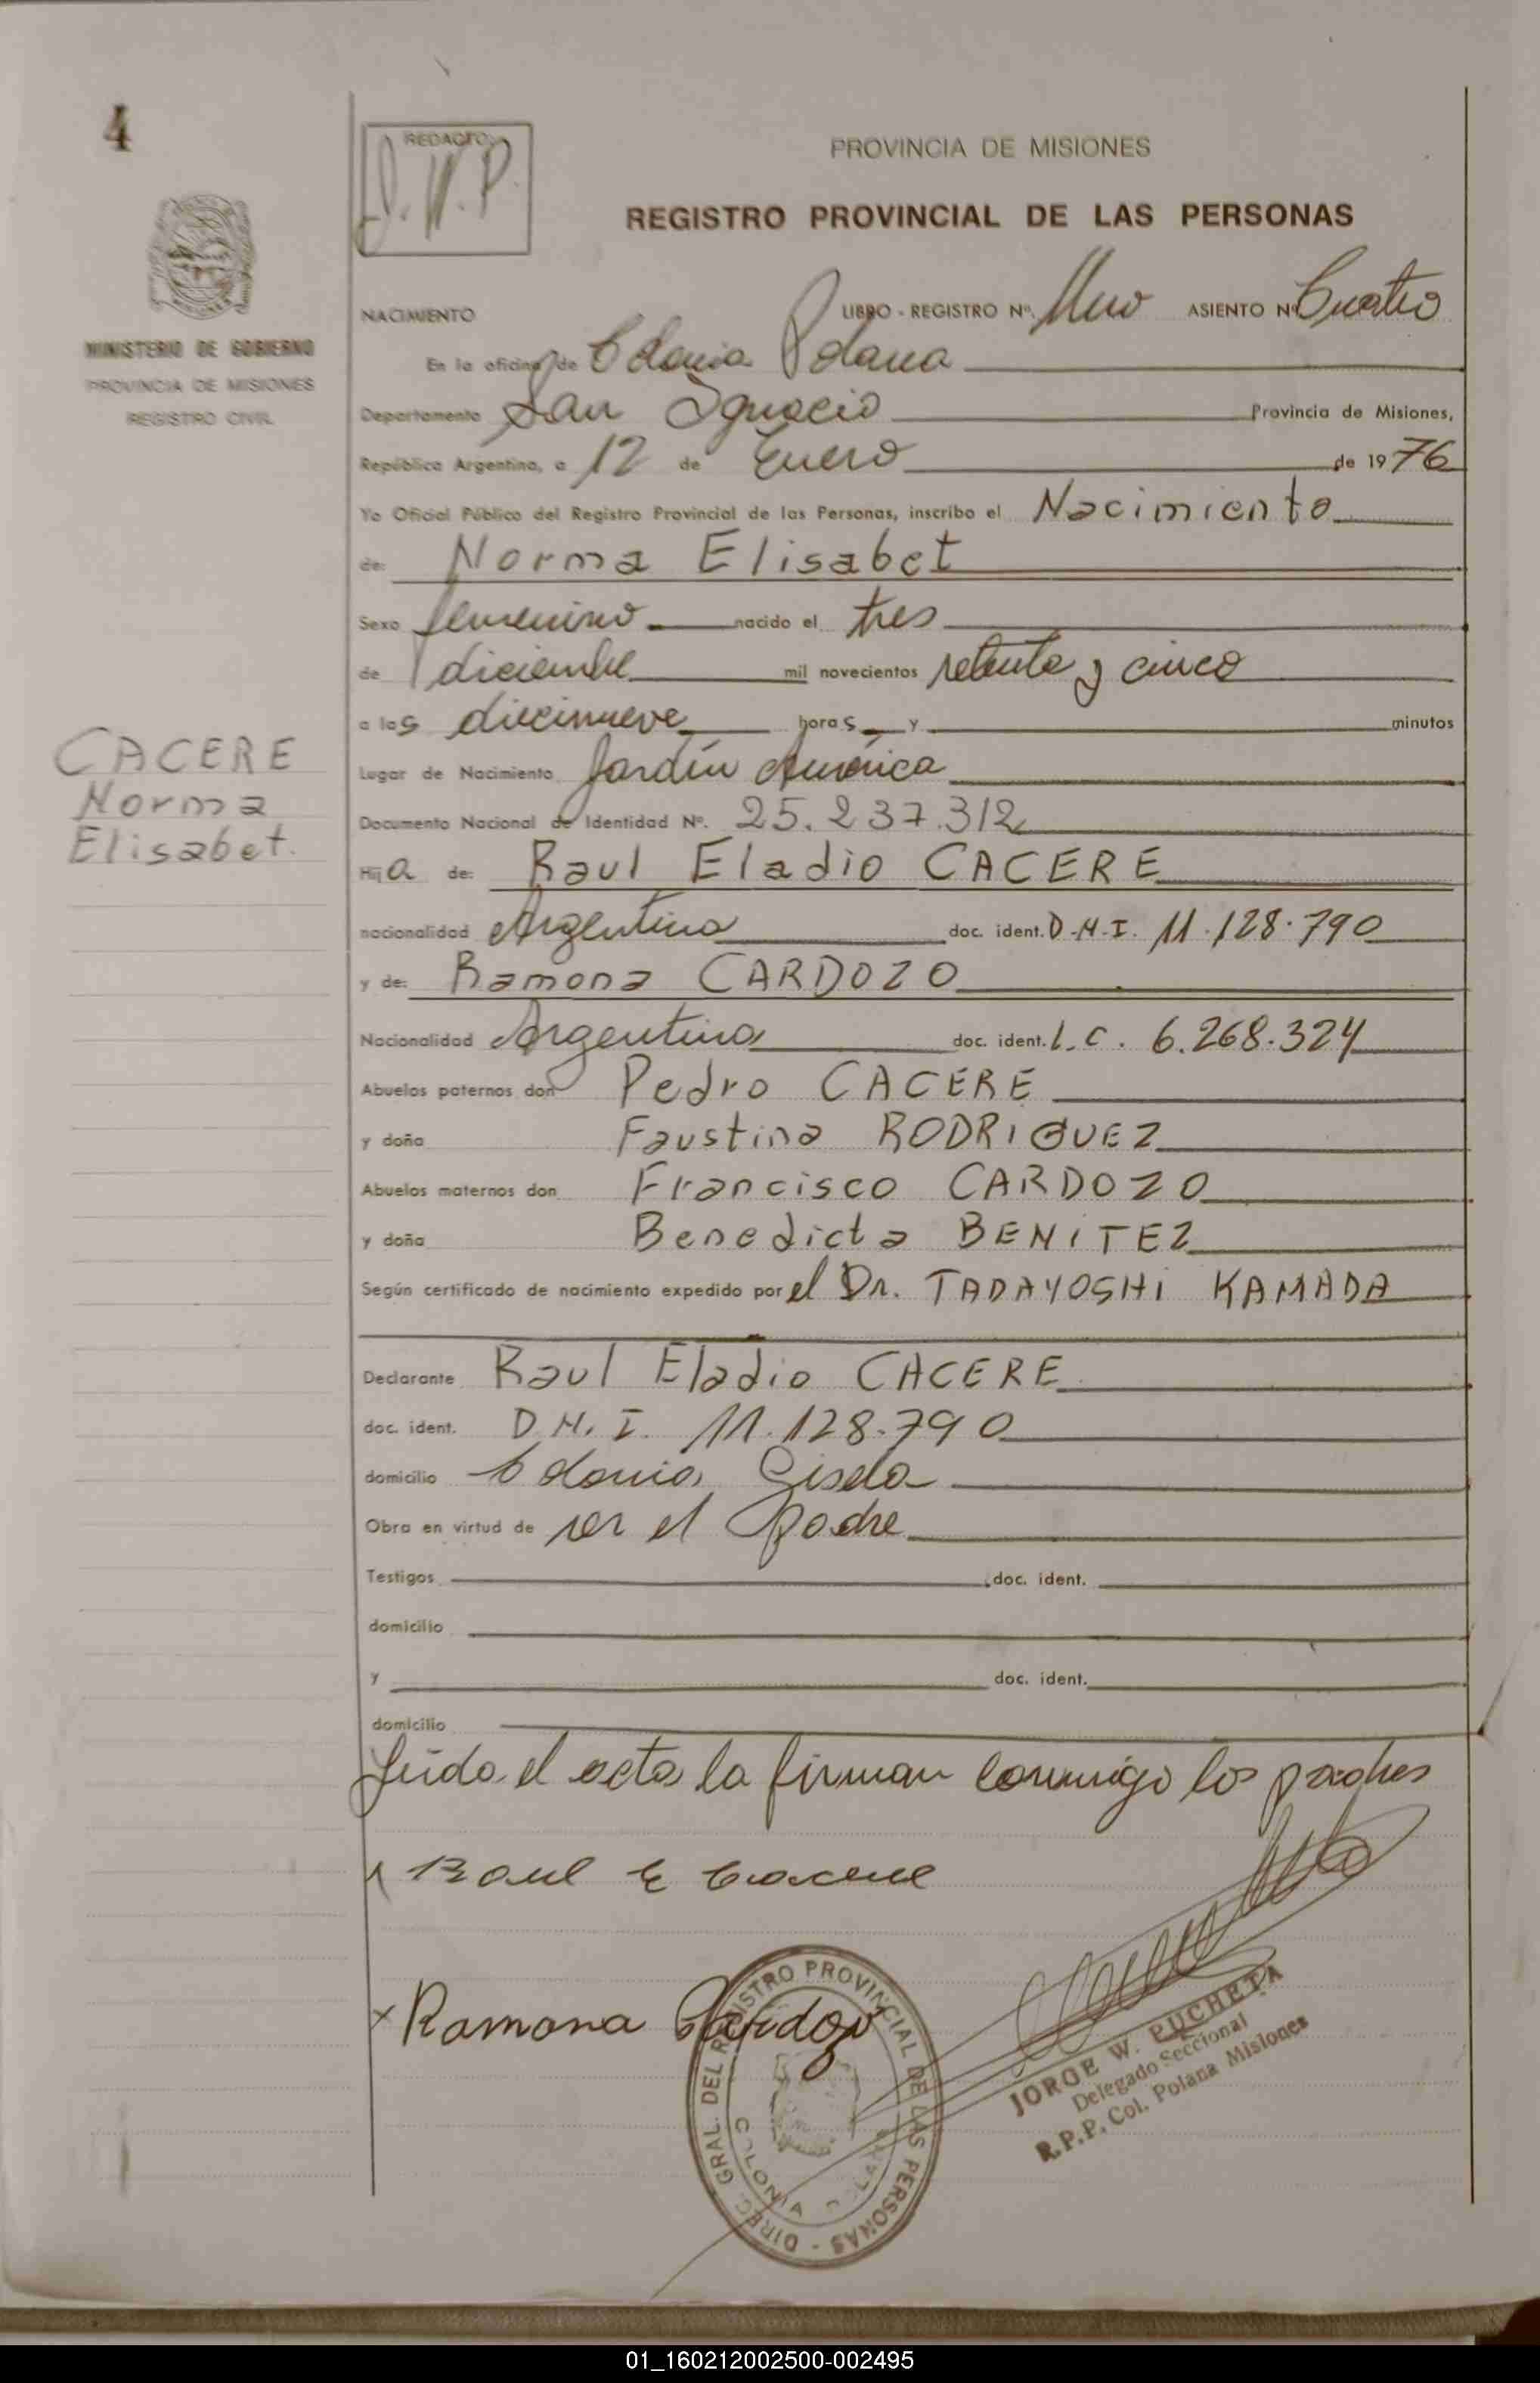 4
REDACTO:
J.W.P.
PROVINCIA DE MISIONES
REGISTRO PROVINCIAL DE LAS PERSONAS
MINISTERIO DE GOBIERNO
PROVINCIA DE MISIONES
REGISTRO CIVIL
NACIMIENTO LIBRO - REGISTRO Nº. Uno ASIENTO Nº Cuatro
En la oficina de Colonia Polana
Departamento San Ignacio Provincia de Misiones,
República Argentina, a 12 de Enero de 1976
Yo Oficial Público del Registro Provincial de las Personas, inscribo el Nacimiento
de: Norma Elisabet
Sexo femenino nacido el tres
de diciembre mil novecientos setenta y cinco
a las diecinueve horas y minutos
CACERE
Norma
Elisabet.
Lugar de Nacimiento Jardín América
Documento Nacional de Identidad Nº. 25.237.312
Hija de: Raul Eladio CACERE
nacionalidad Argentina doc. ident. D.N.I. 11.128.790
y de: Ramona CARDOZO
Nacionalidad Argentina doc. ident. L.C. 6.268.324
Abuelos paternos don Pedro CACERE
y doña Faustina RODRIGUEZ
Abuelos maternos don Francisco CARDOZO
y doña Benedicta BENITEZ
Según certificado de nacimiento expedido por el Dr. TADAYOSHI KAMADA
Declarante Raul Eladio CACERE
doc. ident. D.N.I. 11.128.790
domicilio Colonia Gisela
Obra en virtud de ser el padre
Testigos doc. ident.
domicilio
y doc. ident.
domicilio
Leída el acta la firman conmigo los padres
Raul E Cacere
x Ramona Cardozo
DIREC. GRAL. DEL REGISTRO PROVINCIAL DE LAS PERSONAS -
COLONIA POLANA
JORGE W. PUCHETA
Delegado Seccional
R.P.P. Col. Polana Misiones
01_160212002500-002495